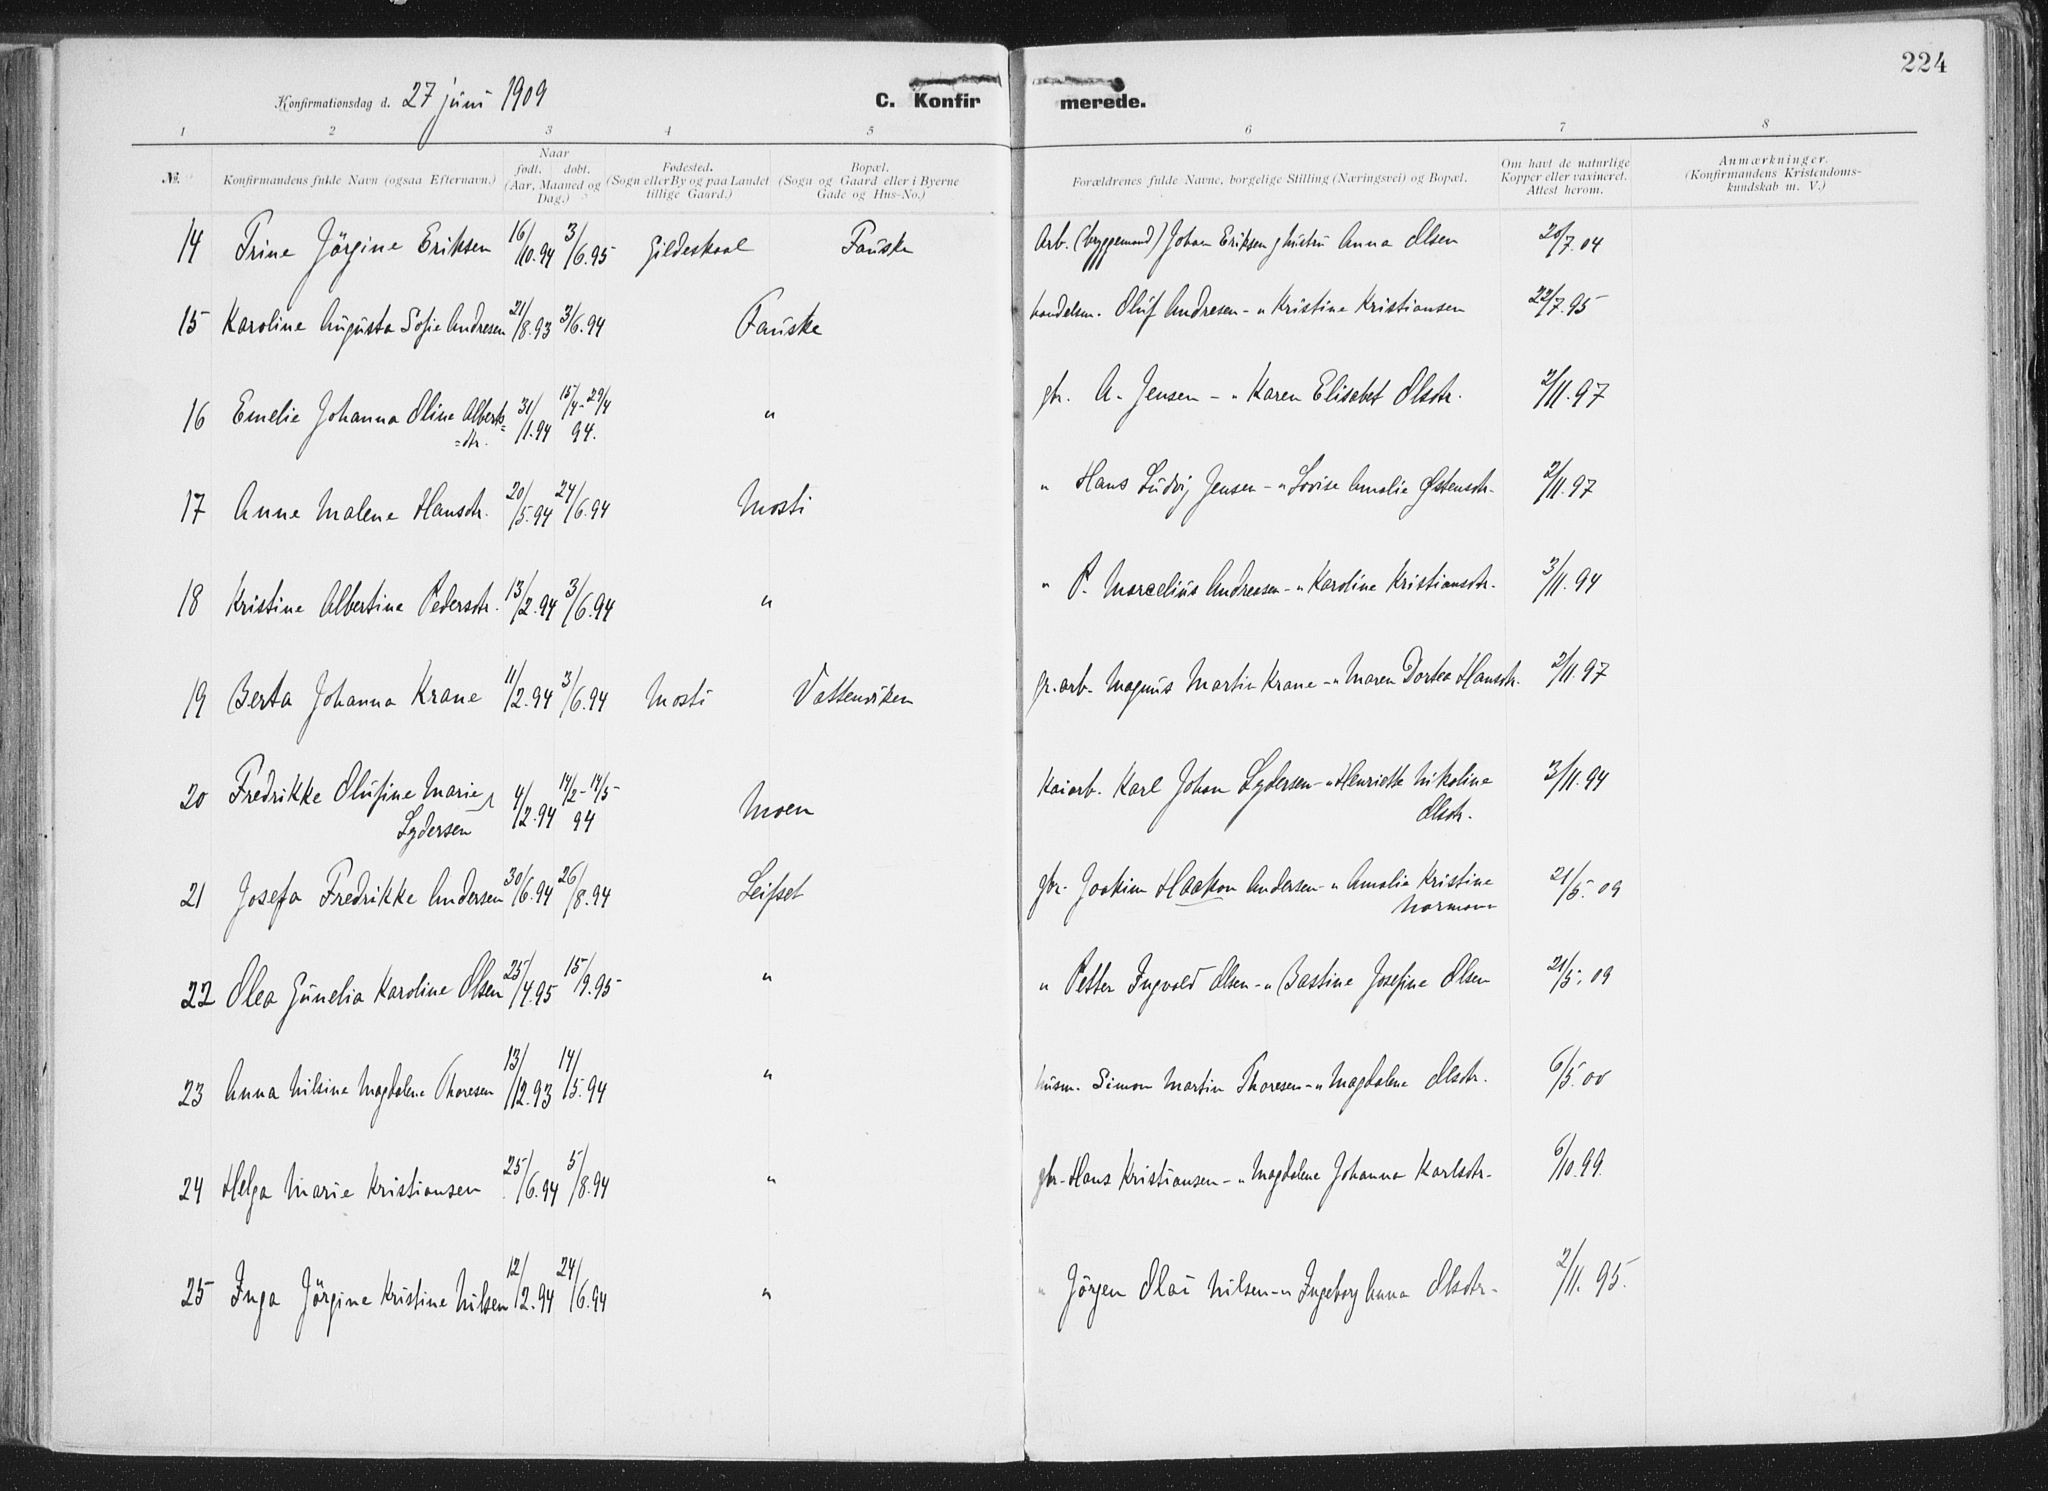 224
Konfirmationsdag d. 27 juni 1909 C. Konfirmerede.
1 2 3 4 5 6 7 8
№. Konfirmandens fulde Navn (ogsaa Efternavn.) Naar født. døbt. (Aar, Maaned og Dag.) Fødested. (Sogn eller By og paa Landet tillige Gaard.) Bopæl. (Sogn og Gaard eller i Byerne Gade og Hus-No.) Forældrenes fulde Navne, borgelige Stilling (Næringsvei) og Bopæl. Om havt de naturlige Kopper eller vaxineret. Attest herom. Anmærkninger. (Konfirmandens Kristendomskundskab m. V.)
14 Trine Jörgine Eriksen 16/10.94 3/6.95 Gildeskaal Fauske Arb. (bryggemand) Johan Eriksen g hustru Anna Olsen 20/7.04
15 Karoline Augusta Sofie Andresen 21/8.93 3/6.94 Fauske handelsm. Oluf Andresen - " Kristine Kristiansen 22/7.95
16 Emelie Johanna Oline Alberts=
=dtr. 31/1.94 15/4-29/4 94. " gbr. A. Jensen - " Karen Elisabet Olsdtr. 2/11.97
17 Anne Malene Hansdtr. 20/5.94 24/6.94 Mosti " Hans Ludvig Jensen - " Lovise Amalie Østensdtr. 2/11.97
18 Kristine Albertine Pedersdtr. 13/2.94 3/6.94 " " P. Marcelius Andreasen - " Karoline Kristiansdtr. 3/11.94
19 Berta Johanna Krane 11/2.94 3/6.94 Mosti Vattenviken gr.arb. Magnus Martin Krane - " Maren Dortea Hansdtr. 2/11.97
20 Fredrikke Olufine Marie
Lydersen 4/2.94 14/2-14/5 94 Moen Kaiarb. Karl Johan Lydersen - " Henriette Nikoline
Olsdtr. 3/11.94
21 Josefa Fredrikke Andersen 30/6.94 26/8.94 Leifset gbr. Joakim Haakon Andersen - " Amalie Kristine
Normann 21/5.09
22 Olea Gunelia Karoline Olsen 25/4.95 15/9.95 " " Petter Ingvald Olsen - " Bastine Josefine Olsen 21/5.09
23 Anna Nilsine Magdalene Thoresen 13/12.93 14/5.94 " husm. Simon Martin Thoresen - " Magdalene Olsdtr. 6/5.00
24 Helga Marie Kristiansen 25/6.94 5/8.94 " gbr. Hans Kristiansen - " Magdalene Johanna Karlsdtr. 6/10.99.
25 Inga Jörgine Kristine Nilsen 12/2.94 24/6.94 " " Jörgen Olai Nilsen - " Ingeborg Anna Olsdtr. 2/11.95.